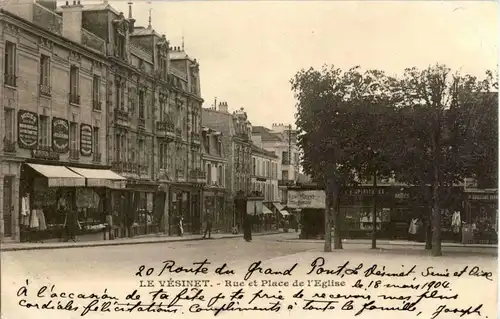 20 Route du grand Pont Le Vésinet, Seine et Oise
LE VÉSINET. - Rue et Place de l'Eglise
le 18 mars 1904.
À l'occasion de ta fête je te prie de recevoir mes plus
cordiales félicitations. Compliments à toute la famille, Joseph